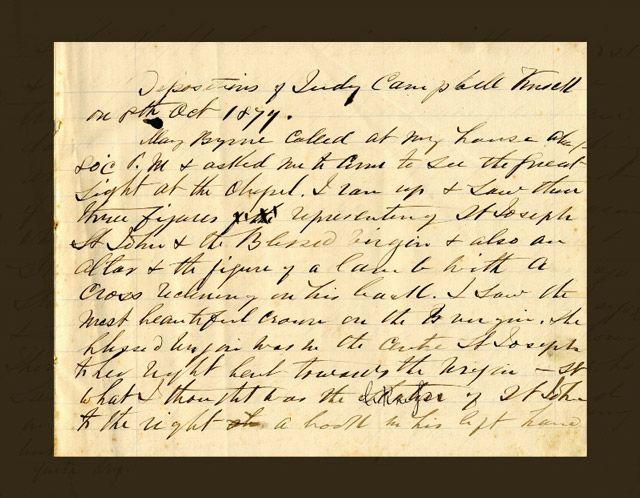 Depositions of Judy Campbell
on 8th Oct 1879.
Mary Byrne called at my house about
8 oc P.M & asked me to come to see the great
sight at the Chapel. I ran up & saw there
three figures representing St Joseph
St John & the Blessed Virgin & also an
altar & the figure of a lamb with a
cross reclining on his back. I saw the
most beautiful crown on the B virgin. The
blessed virgin was in the centre St Joseph
to her right bent towards the virgin — St
what I thought was the of St John
to the right a book in his left hand